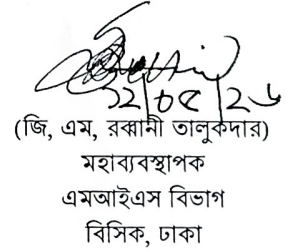 ১২/০৫/২৬
(জি, এম, রব্বানী তালুকদার)
মহাব্যবস্থাপক
এমআইএস বিভাগ
বিসিক, ঢাকা